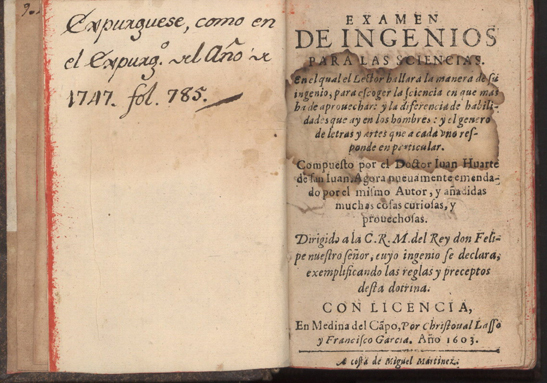 Expurguese, como en
el Expurg.º del Año de
1747. fol. 785.
EXAMEN
DE INGENIOS
PARA LAS SCIENCIAS.
En el qual el Lector hallara la manera de su
ingenio, para escoger la sciencia en que mas
ha de aprouechar: y la diferencia de habili-
dades que ay en los hombres: y el genero
de letras y artes que a cada vno res-
ponde en particular.
Compuesto por el Doctor Iuan Huarte
de san Iuan. Agora nueuamente emenda-
do por el mismo Autor, y añadidas
muchas cosas curiosas, y
prouechosas.
Dirigido a la C. R. M. del Rey don Feli-
pe nuestro señor, cuyo ingenio se declara,
exemplificando las reglas y preceptos
desta dotrina.
CON LICENCIA,
En Medina del Cãpo, Por Christoual Lasso
y Francisco Garcia. Año 1603.
A costa de Miguel Martinez.